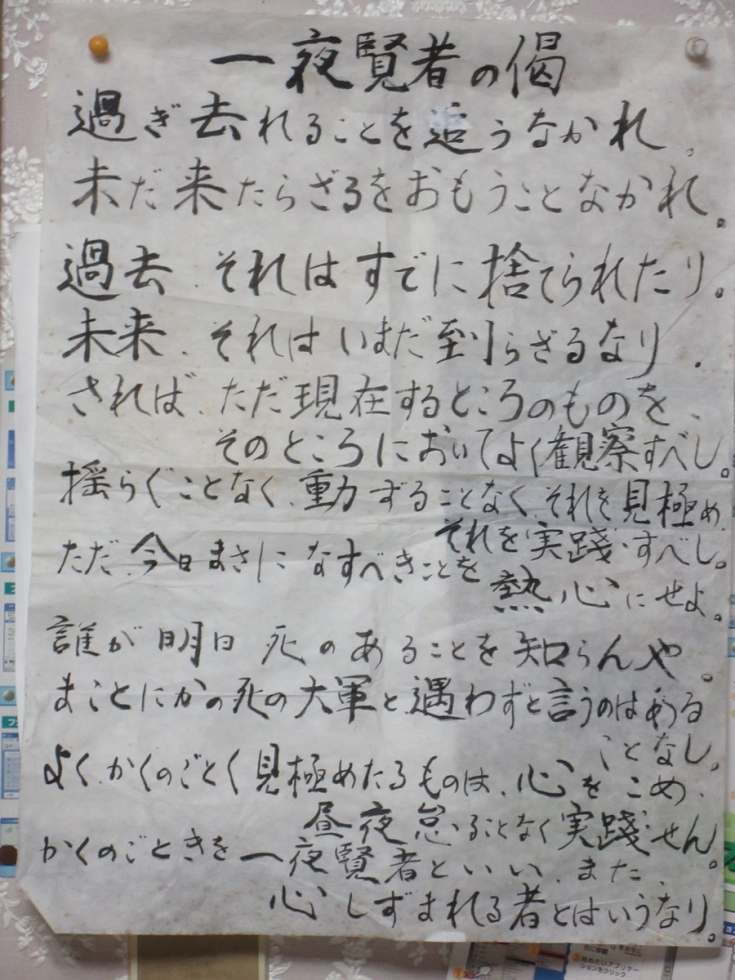 一夜賢者の偈
過ぎ去れることを追うなかれ、
未だ来たらざるをおもうことなかれ。
過去、それはすでに捨てられたり。
未来、それはいまだ到らざるなり。
されば、ただ現在するところのものを、
そのところにおいてよく観察すべし。
揺らぐことなく、動ずることなく、それを見極め
それを実践すべし。
ただ、今日まさになすべきことを
熱心にせよ。
誰が明日死のあることを知らんや。
まことにかの死の大軍と遇わずと言うのはある
ことなし。
よく、かくのごとく見極めたるものは、心をこめ、
昼夜怠ることなく実践せん。
かくのごときを一夜賢者といい、また、
心しずまれる者とはいうなり。